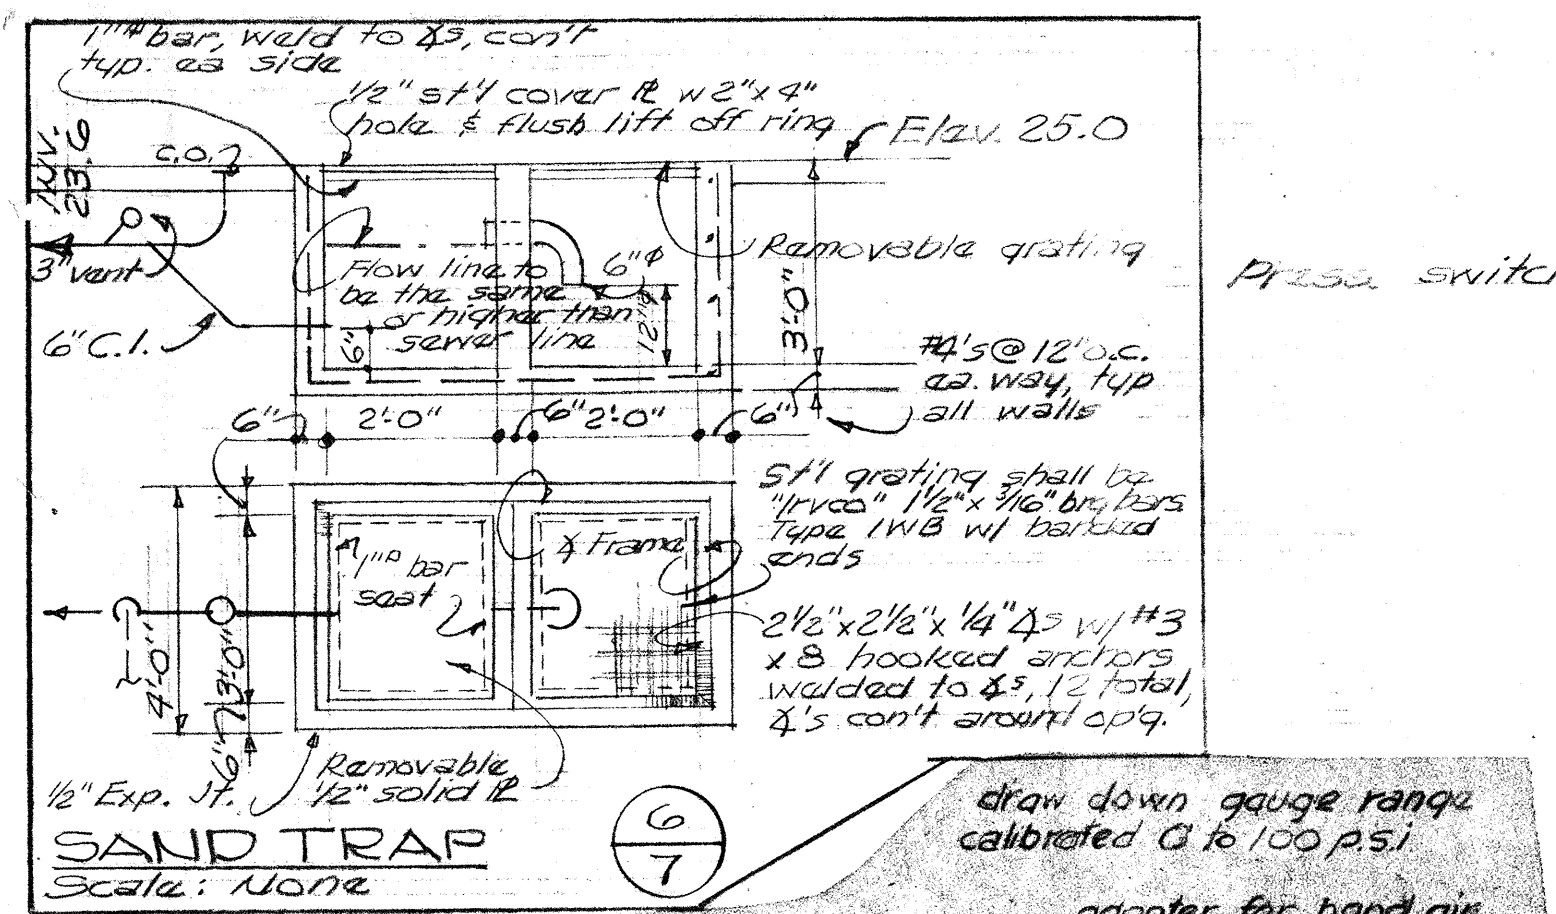 1"⌀ bar, weld to ∡s, con't
typ. ea side
1/2" st'l cover ℄ w 2"x 4"
hole & flush lift off ring
Elev. 25.0
INV.
23.6
C.O.
3" vent
6" C.I.
Flow line to
be the same
or higher than
sewer line
6"⌀
12"
6"
3'-0"
Removable grating
Press switc
#4's @ 12" o.c.
ea. way, typ
all walls
6"
2'-0"
6"
2'-0"
6"
St'l grating shall be
"Irvco" 1 1/2" x 3/16" brg bars
Type IWB w/ banded
ends
∡ Frame
1"⌀ bar
seat
2 1/2" x 2 1/2" x 1/4" ∡s w/ #3
x 8 hooked anchors
welded to ∡s, 12 total,
∡'s con't around op'g.
4'-0"
3'-0"
6"
Removable
1/2" solid ℄
1/2" Exp. Jt.
SAND TRAP
Scale: None
6
7
draw down gauge range
calibrated 0 to 100 p.s.i
adapter for hand air